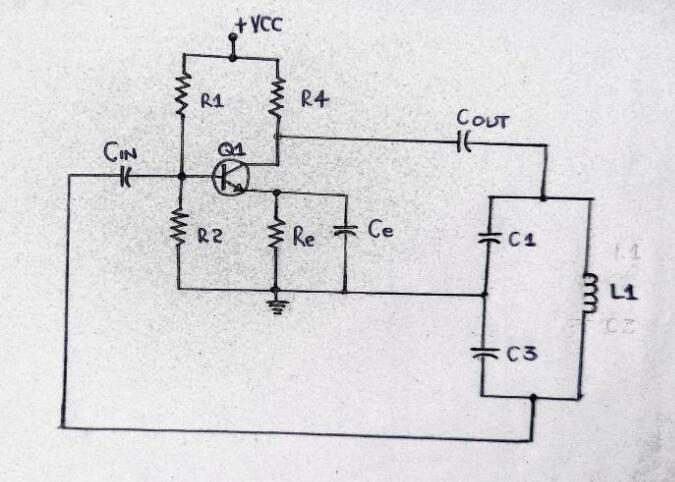 +VCC
R1
R4
COUT
CIN
Q1
R2
Re
Ce
C1
L1
L1
C3
C3